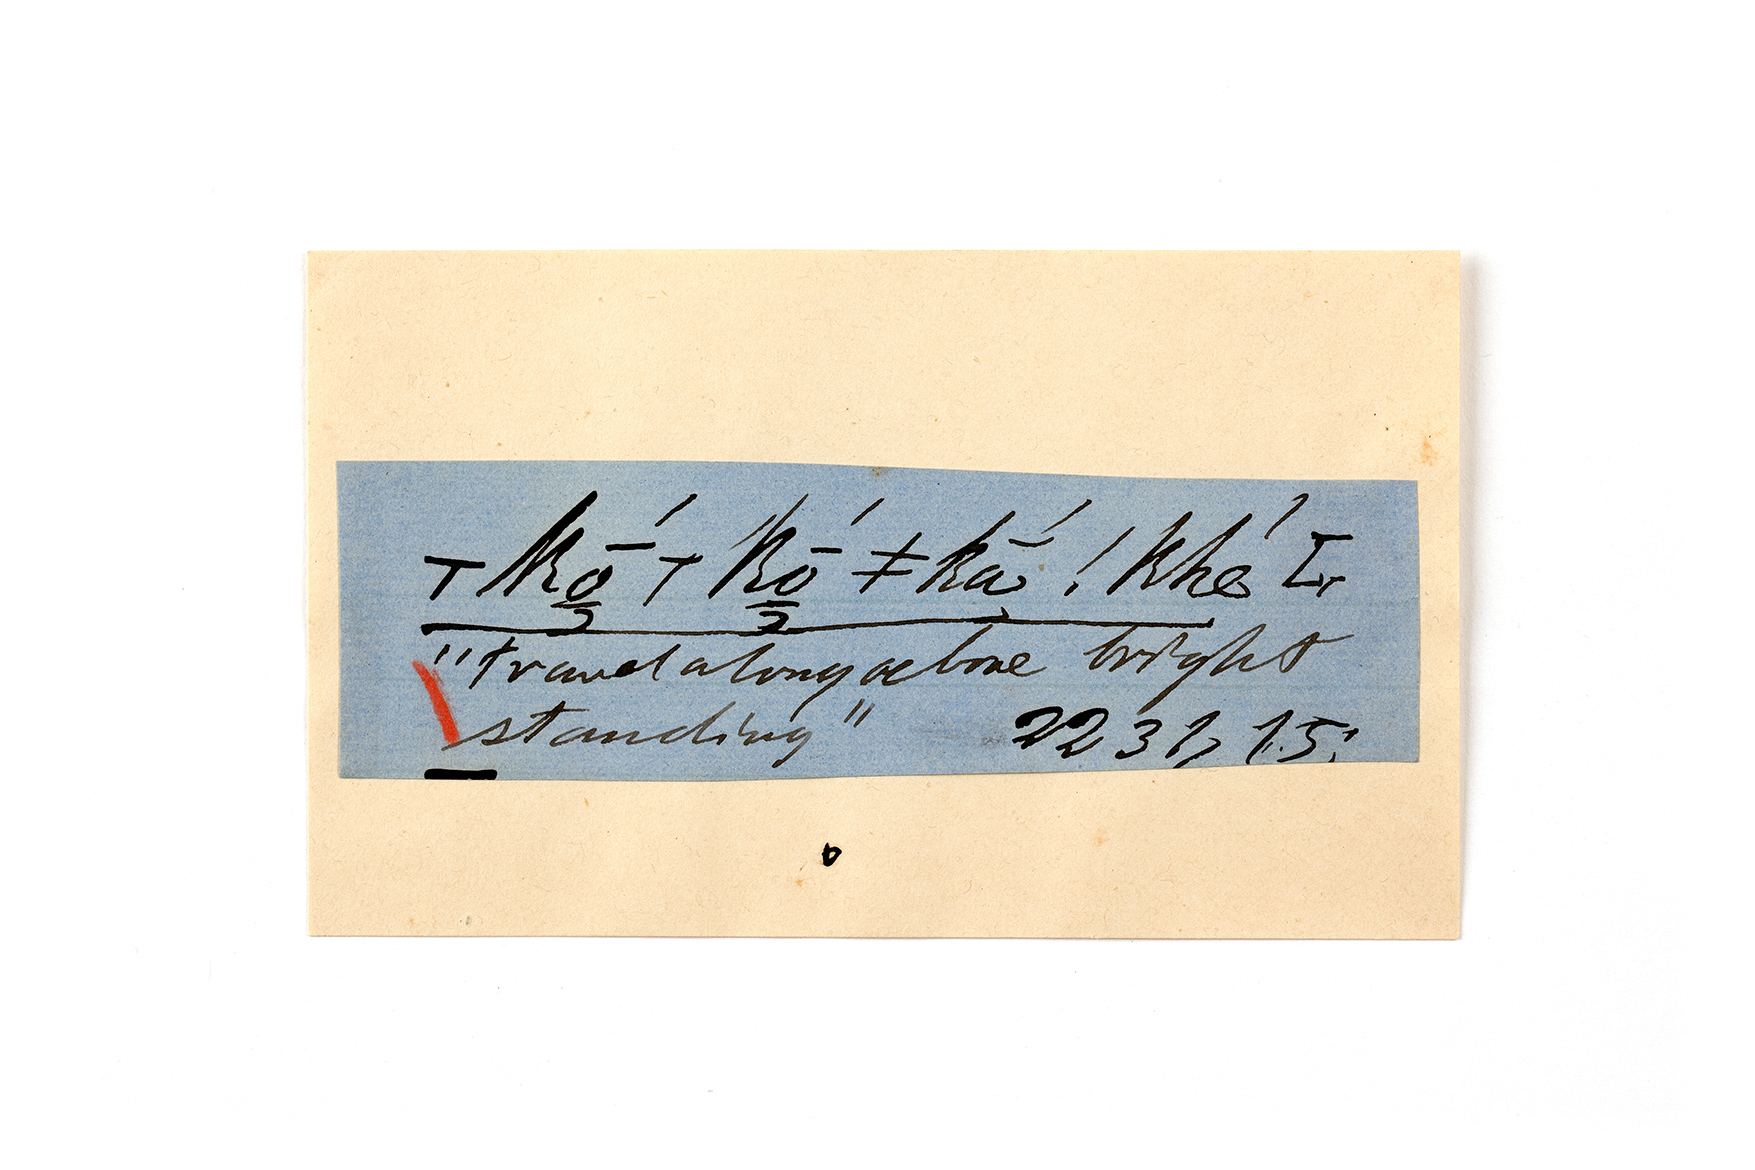 ⊤kṓ̱ ⊤kṓ̱ ǂkā́ !khé I,
"travel along above bright
standing" 2231, 15;